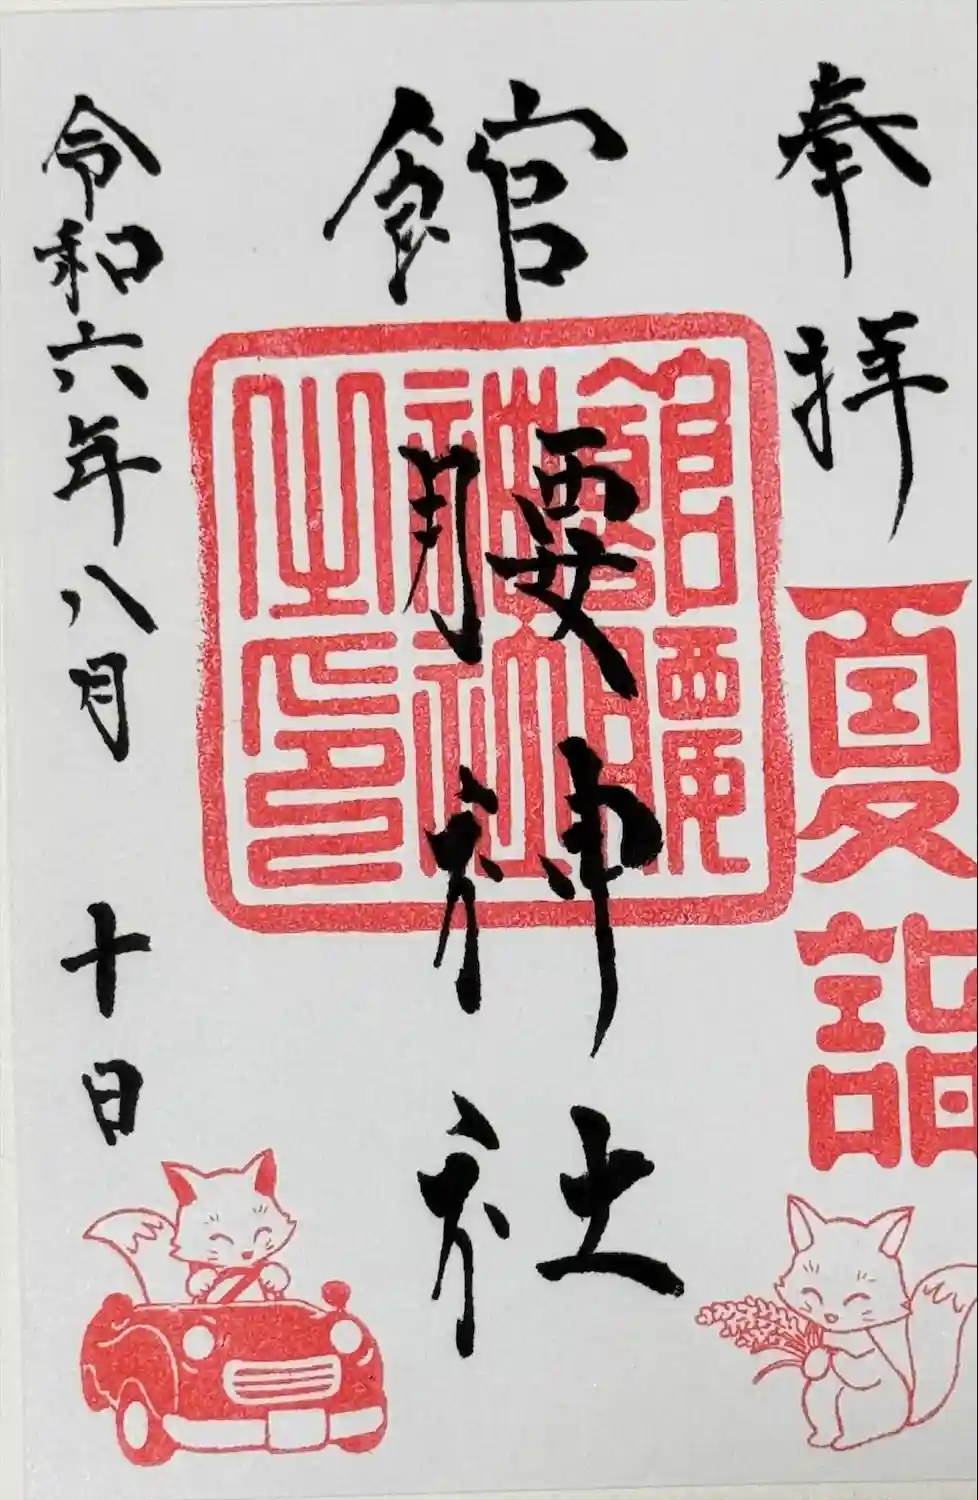 奉拝
夏詣
館腰神社
館腰
神社
之印
令和六年八月十日